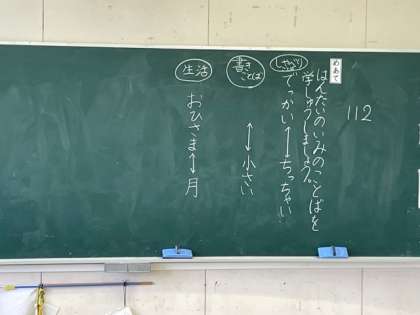 112
めあて
はんたいのいみのことばを
学しゅうしましょう。
しゃべり
でっかい↔ちっちゃい
書きことば
↔小さい
生活
おひさま↔月